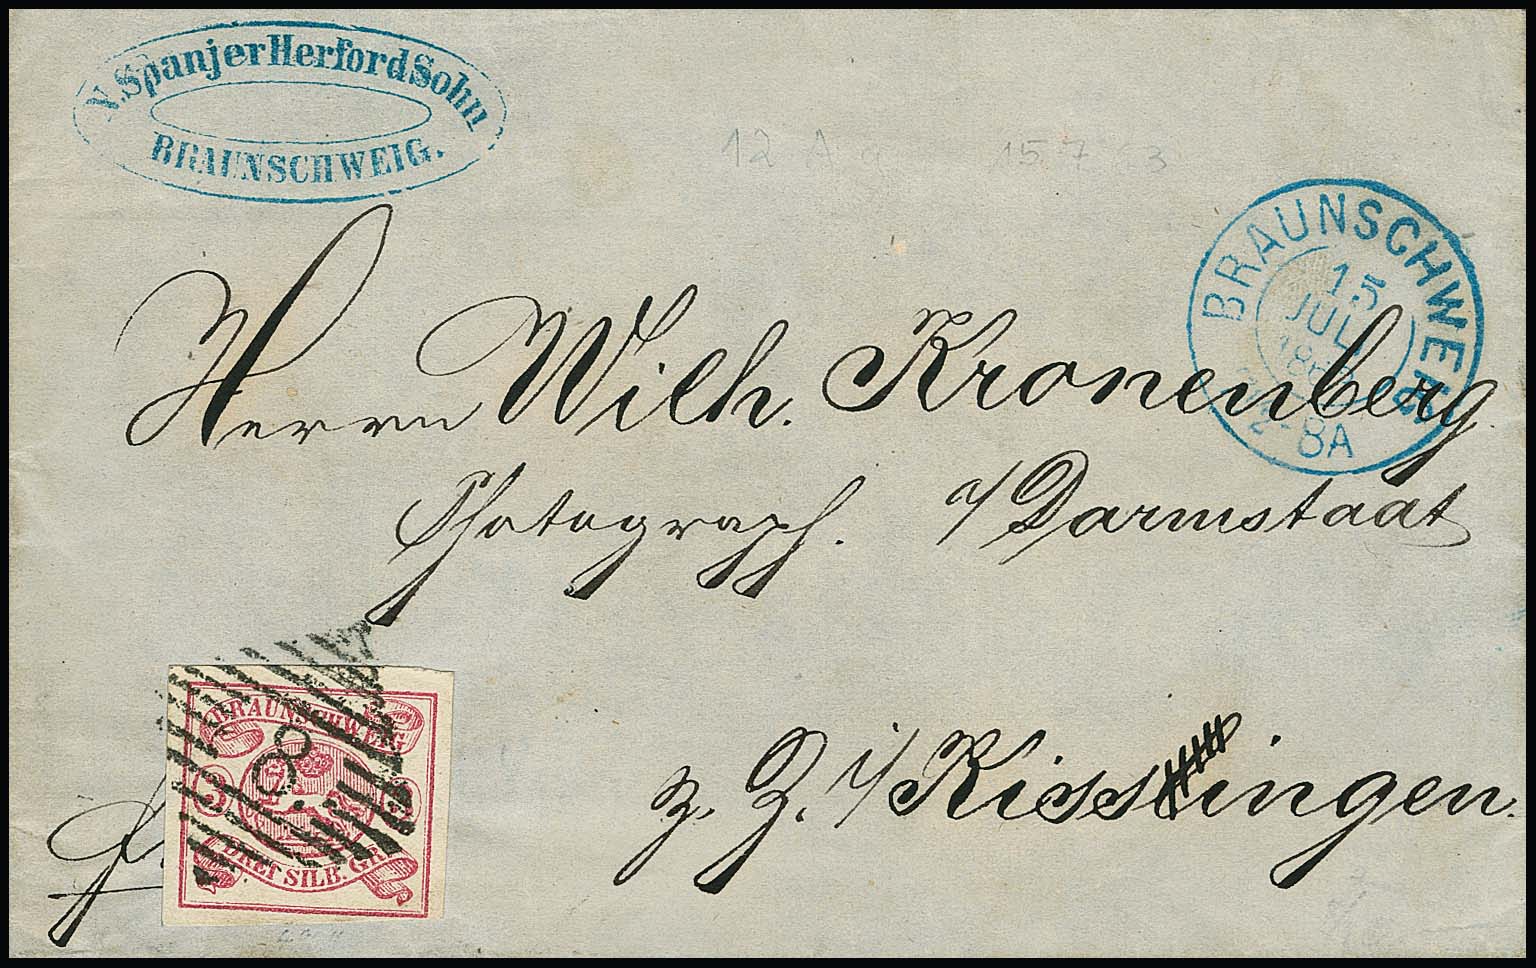 N. Spanjer Herford Sohn
BRAUNSCHWEIG.
12 A
15 7 3
BRAUNSCHWEIG
15
JULI
-8A
Herrn Wilh. Kronenberg.
Photograph. a/ Darmstaat
z. Z. i/ Kissingen.
BRAUNSCHWEIG
8.
3
DREI SILB. GR.
fr.